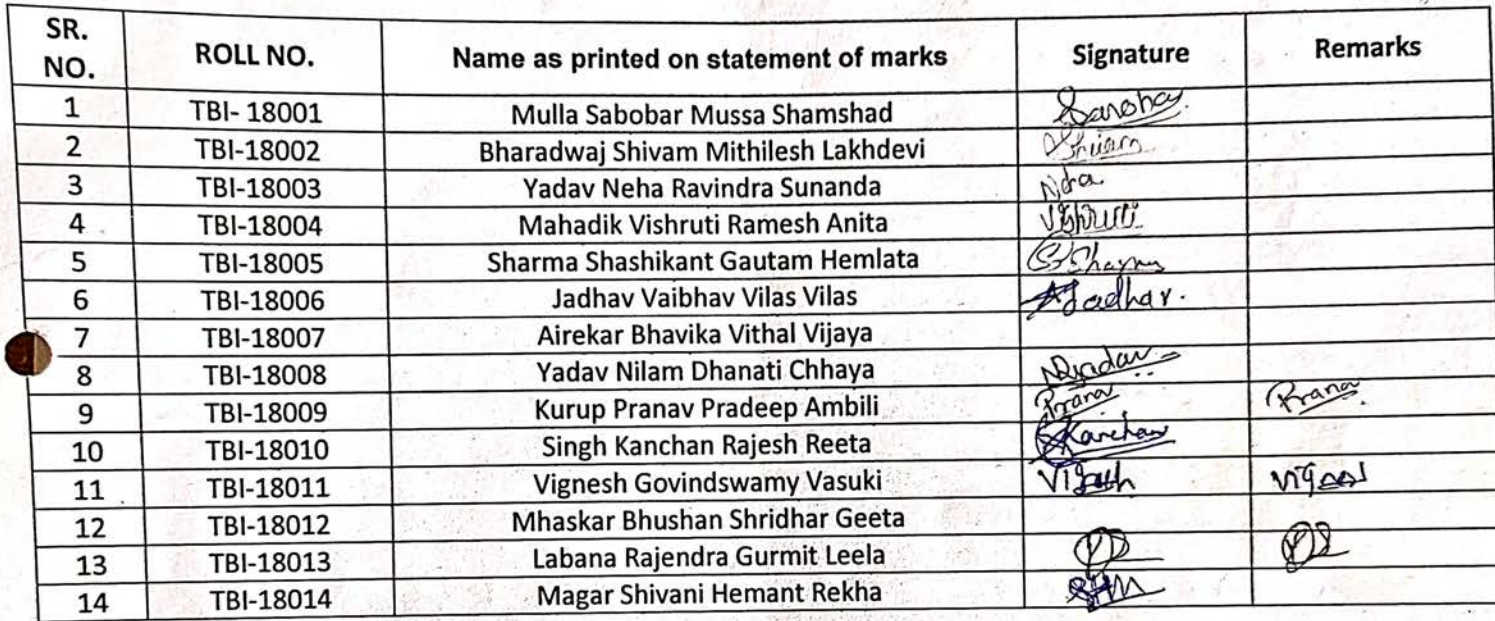 SR. NO. ROLL NO. Name as printed on statement of marks Signature Remarks
1 TBI- 18001 Mulla Sabobar Mussa Shamshad
2 TBI-18002 Bharadwaj Shivam Mithilesh Lakhdevi Shivam
3 TBI-18003 Yadav Neha Ravindra Sunanda
4 TBI-18004 Mahadik Vishruti Ramesh Anita Vishruti
5 TBI-18005 Sharma Shashikant Gautam Hemlata
6 TBI-18006 Jadhav Vaibhav Vilas Vilas
7 TBI-18007 Airekar Bhavika Vithal Vijaya
8 TBI-18008 Yadav Nilam Dhanati Chhaya
9 TBI-18009 Kurup Pranav Pradeep Ambili
10 TBI-18010 Singh Kanchan Rajesh Reeta Kanchan
11 TBI-18011 Vignesh Govindswamy Vasuki
12 TBI-18012 Mhaskar Bhushan Shridhar Geeta
13 TBI-18013 Labana Rajendra Gurmit Leela
14 TBI-18014 Magar Shivani Hemant Rekha